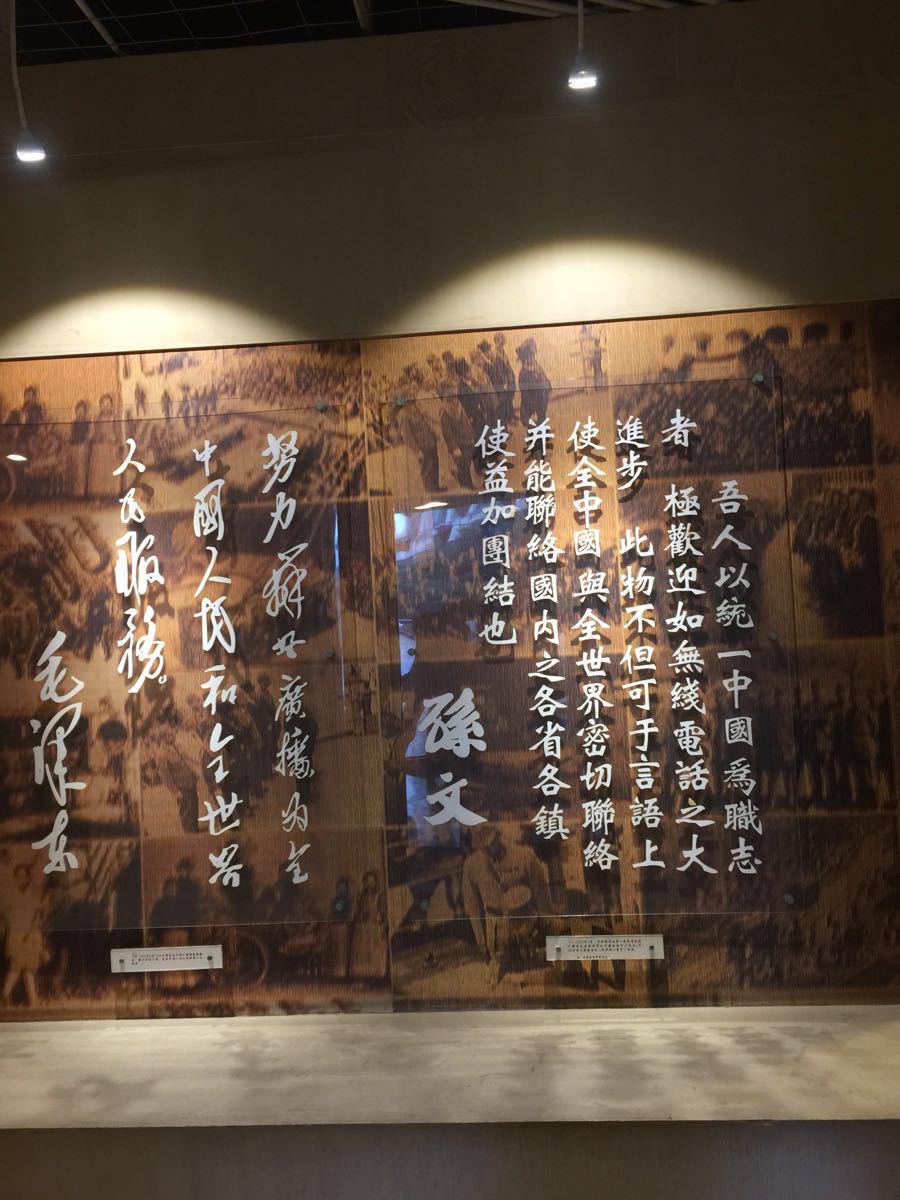 吾人以統一中國爲職志
者 極歡迎如無綫電話之大
進步 此物不但可于言語上
使全中國與全世界密切聯絡
并能聯絡國内之各省各鎮
使益加團結也
孫文
努力辦好廣播为全
中國人民和全世界
人民服務。
毛澤东